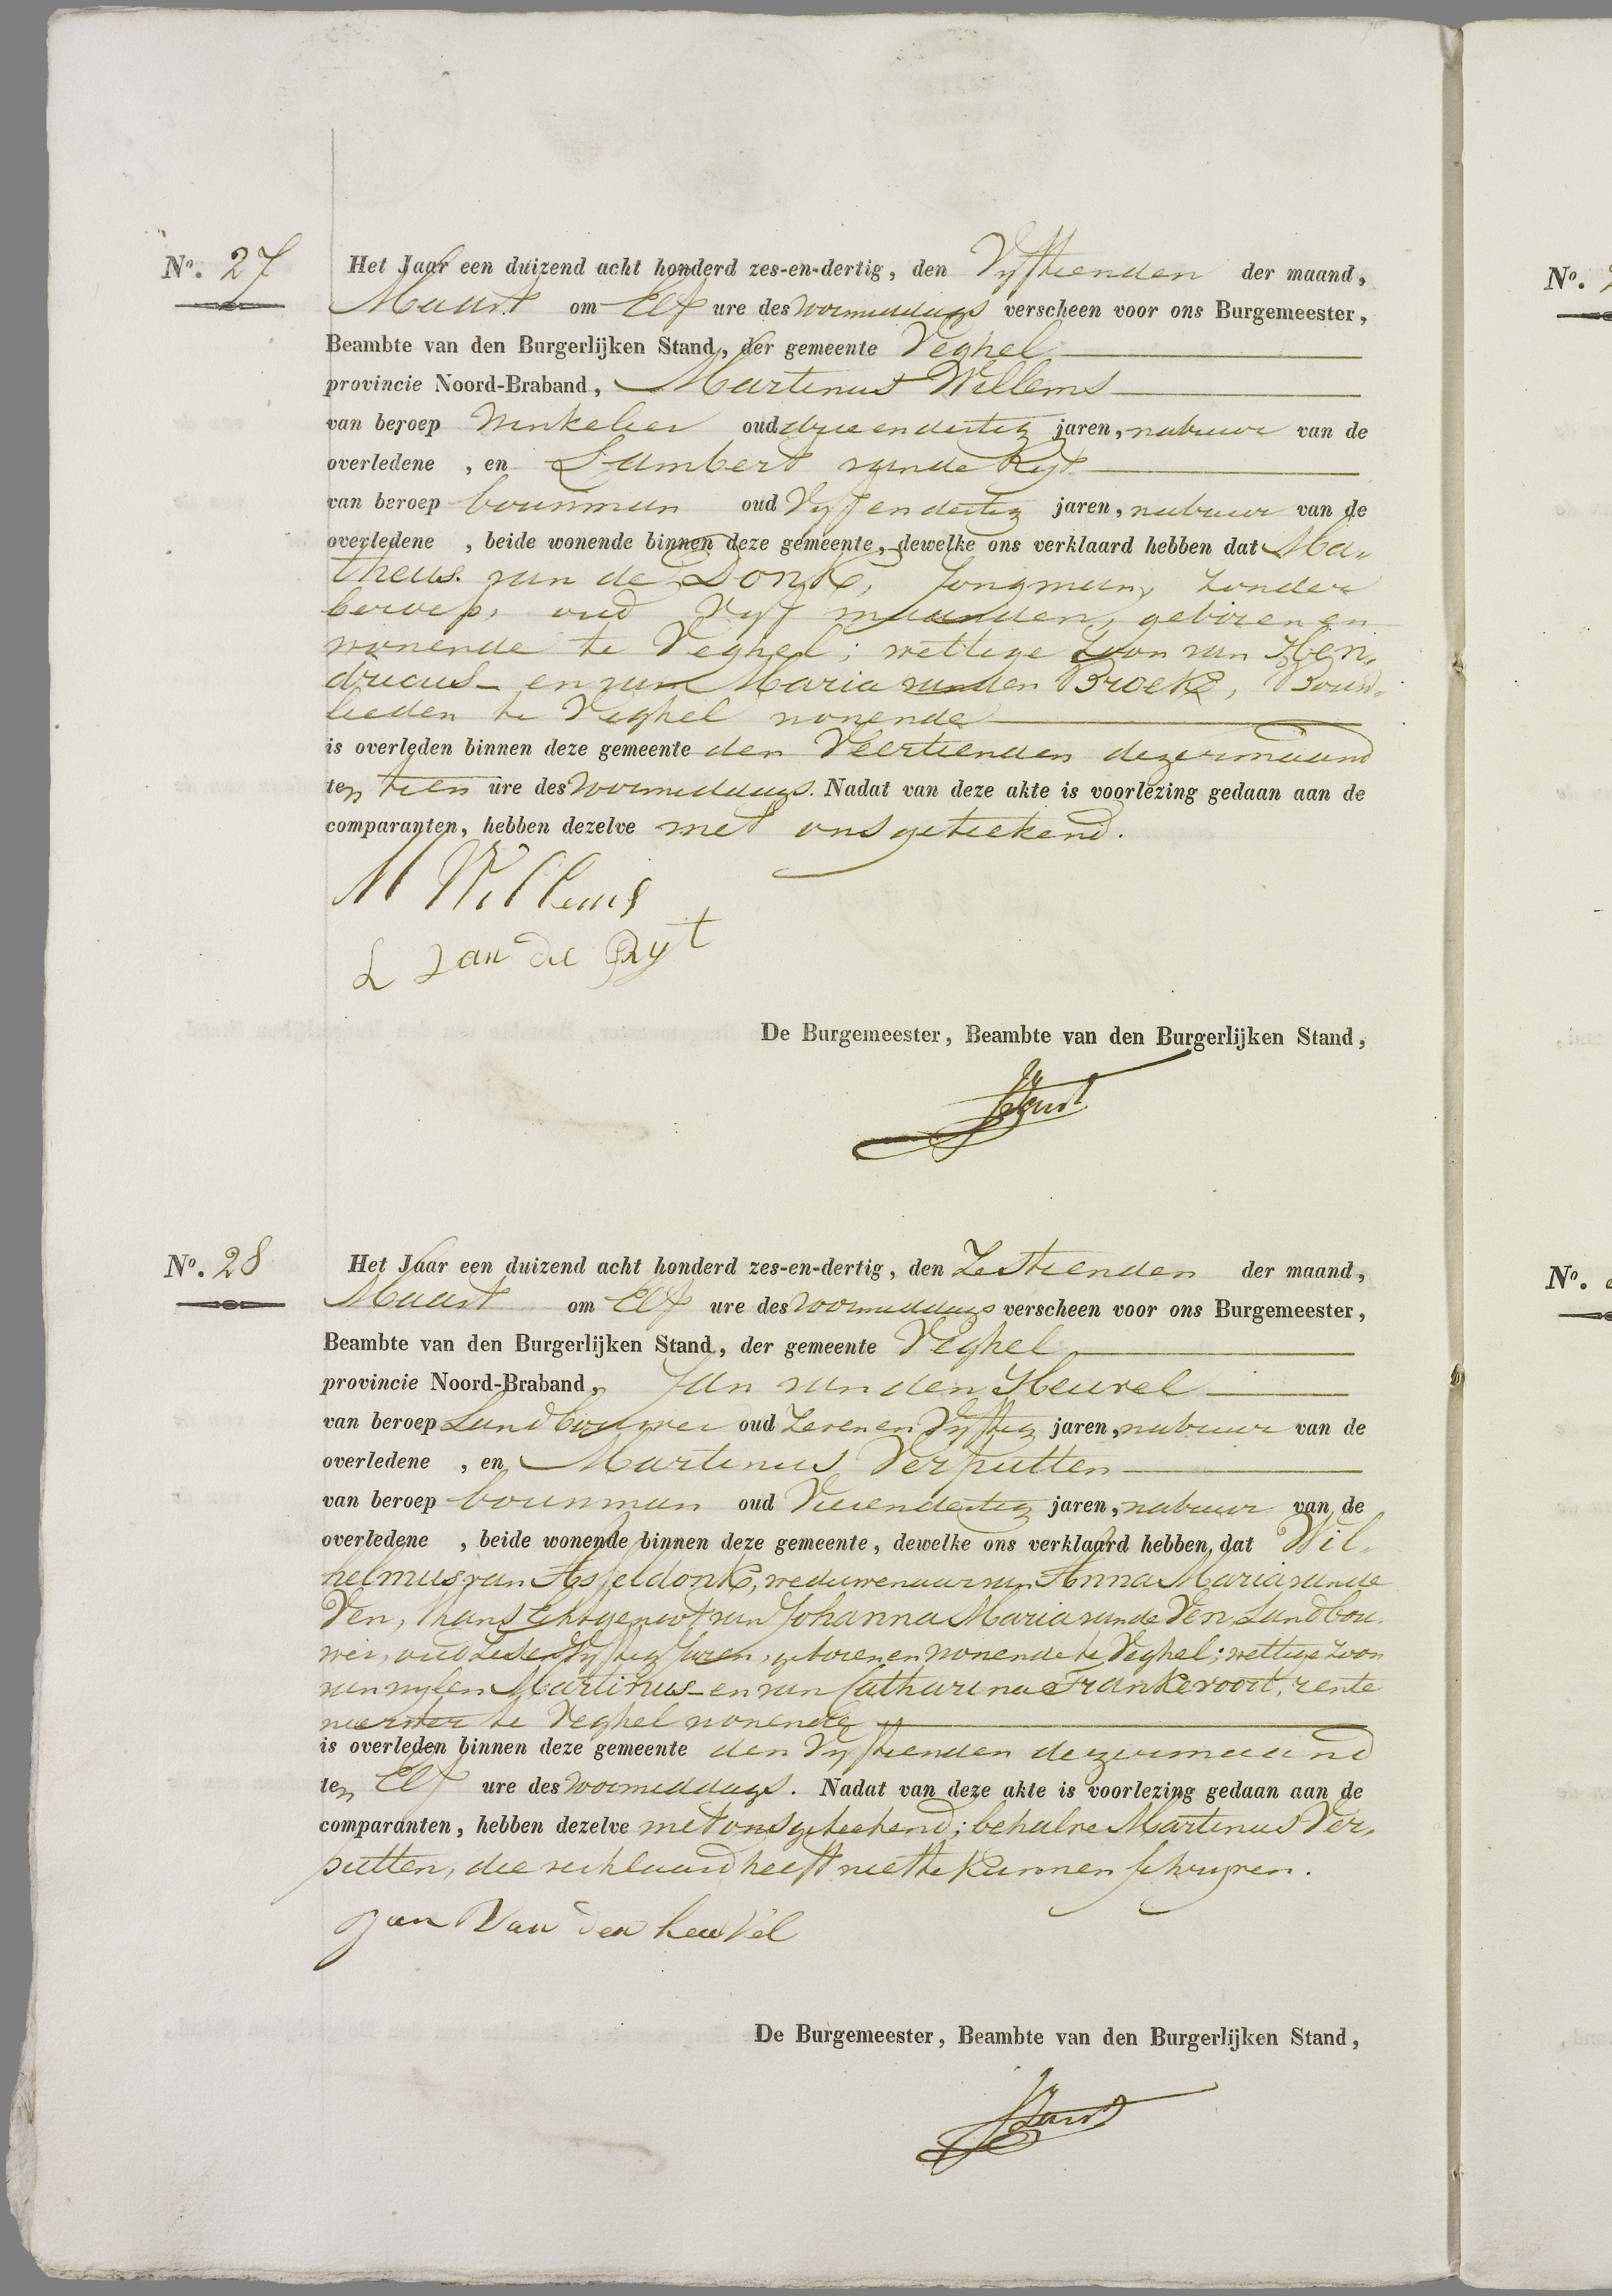 No. 27 Het Jaar een duizend acht honderd zes-en-dertig, den Vyftienden der maand,
Maart om Elf ure des voormiddags verscheen voor ons Burgemeester,
Beambte van den Burgerlijken Stand, der gemeente Veghel
provincie Noord-Braband, Martinus Willems
van beroep Winkelier oud drieendertig jaren, nabuur van de
overledene , en Lambert van de Ryt
van beroep bouwman oud Vyfendertig jaren, nabuur van de
overledene , beide wonende binnen deze gemeente, dewelke ons verklaard hebben dat Ma-
theus van de Donk, Jongman, zonder
beroep, oud Vyf maanden, geboren en
wonende te Veghel; wettige Zoon van Hen-
dricus - en van Maria van den Broek, Bouw-
lieden te Veghel wonende
is overleden binnen deze gemeente den Veertienden dezer maand
ten tien ure des voormiddags. Nadat van deze akte is voorlezing gedaan aan de
comparanten, hebben dezelve met ons geteekend.
M Willems
L van de Ryt
De Burgemeester, Beambte van den Burgerlijken Stand,
No. 28 Het Jaar een duizend acht honderd zes-en-dertig, den Zestienden der maand,
Maart om Elf ure des voormiddags verscheen voor ons Burgemeester,
Beambte van den Burgerlijken Stand, der gemeente Veghel
provincie Noord-Braband, Jan van den Heuvel
van beroep Landbouwer oud Zevenen Vyftig jaren, nabuur van de
overledene , en Martinus Verputten
van beroep bouwman oud Vierendertig jaren, nabuur van de
overledene , beide wonende binnen deze gemeente, dewelke ons verklaard hebben, dat Wil-
helmus van Asseldonk, weduwenaar van Anna Maria van de
Ven, thans Echtgenoot van Johanna Maria van de Ven, Landbou-
wer, oud Zesen Vyftig Jaren, geboren en wonende te Veghel; wettige zoon
van wylen Martinus - en van Catharina Frankevoort, rente
nierster te Veghel wonende
is overleden binnen deze gemeente den Vyftienden dezer maand
ten Elf ure des voormiddags. Nadat van deze akte is voorlezing gedaan aan de
comparanten, hebben dezelve met ons geteekend; behalve Martinus Ver-
putten, die verklaard heeft niet te kunnen schryven.
Jan Van den heuvel
De Burgemeester, Beambte van den Burgerlijken Stand,
No.
No.